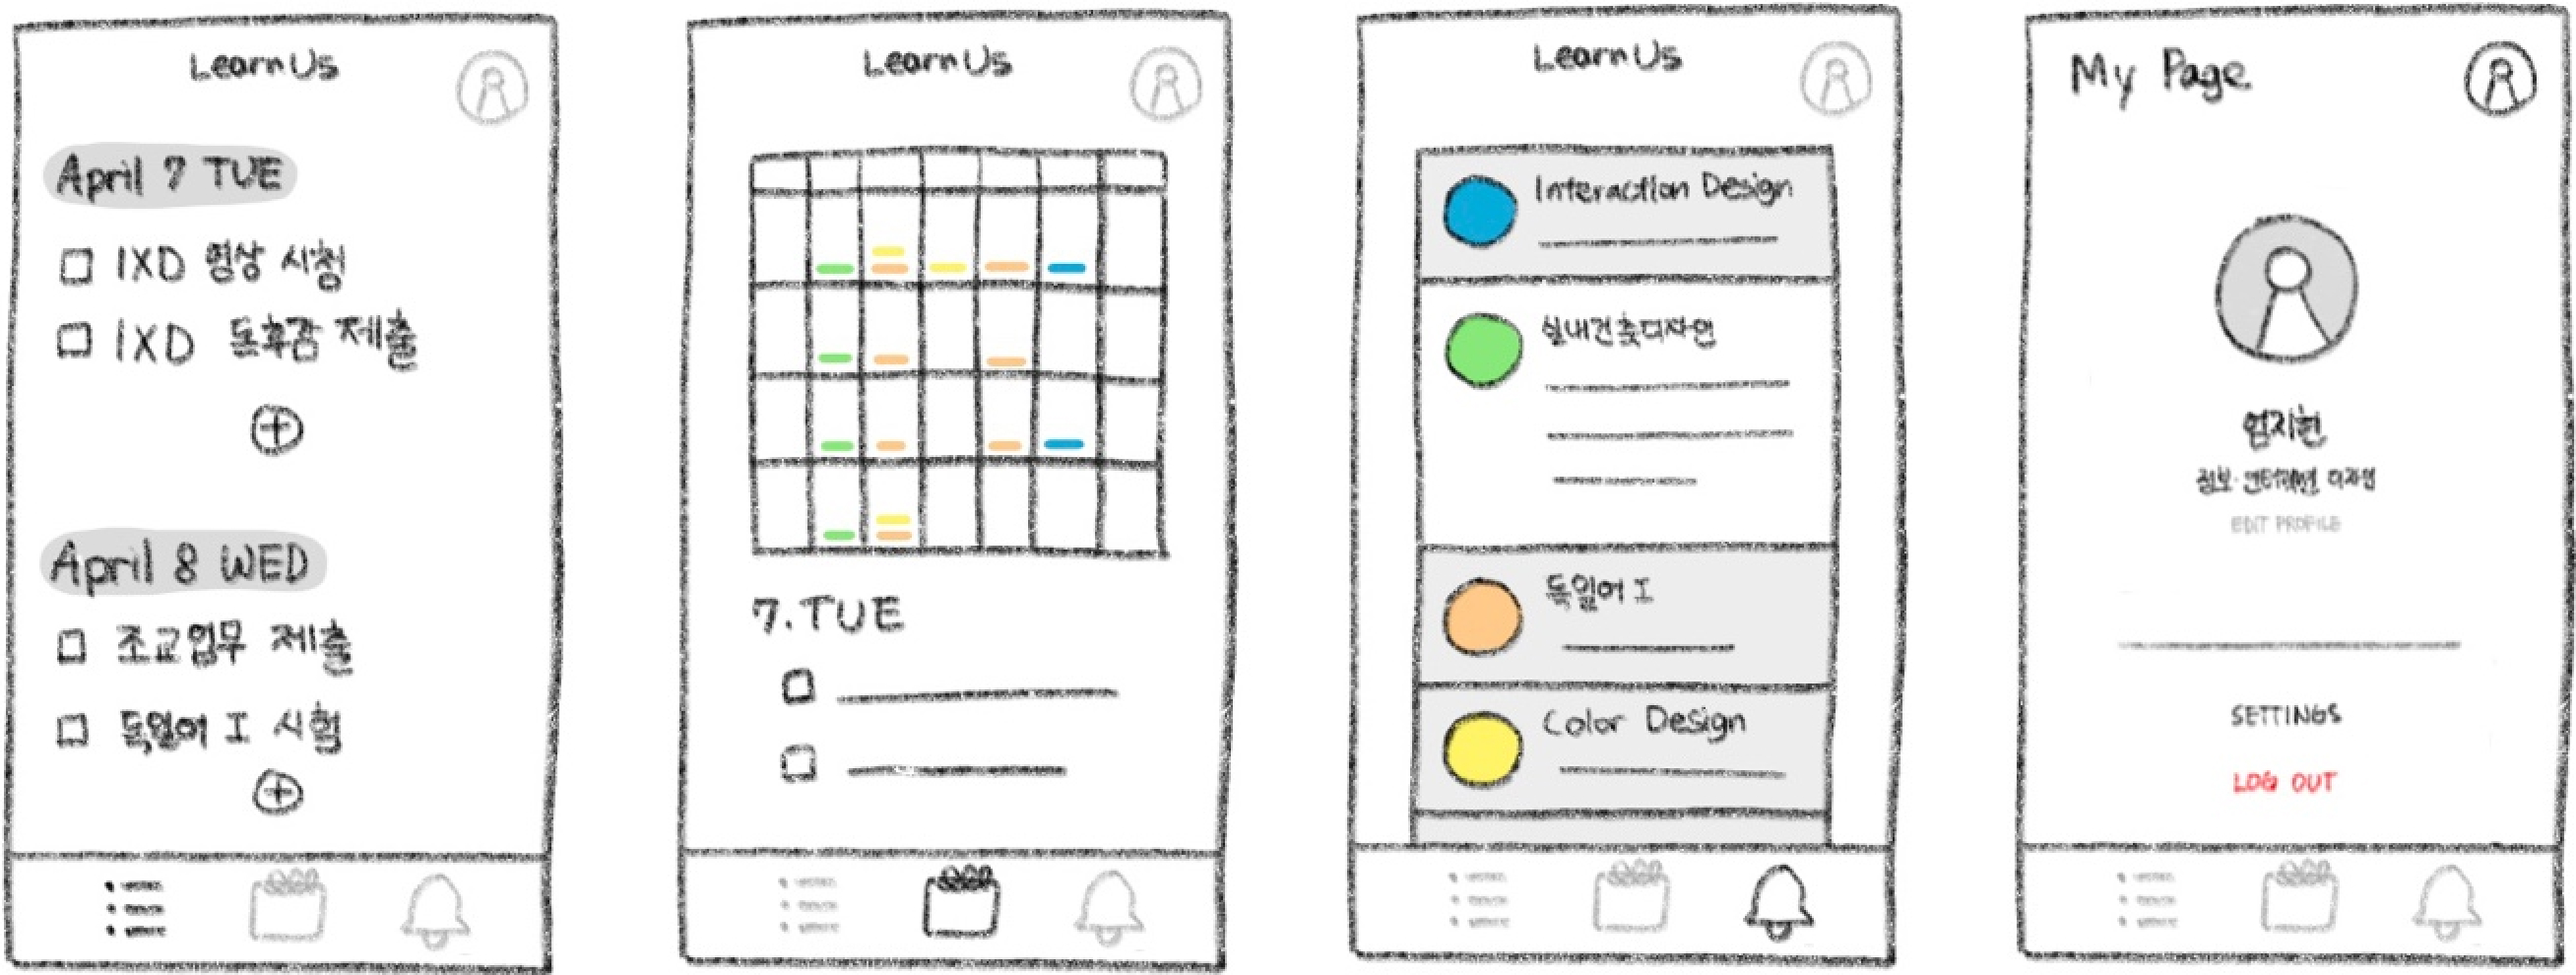 LearnUs
April 7 TUE
IXD 영상 시청
IXD 독후감 제출
April 8 WED
조교업무 제출
독일어 I 시험
LearnUs
7. TUE
LearnUs
Interaction Design
실내건축디자인
독일어 I
Color Design
My Page
엄지현
정보·인터랙션 디자인
EDIT PROFILE
SETTINGS
LOG OUT